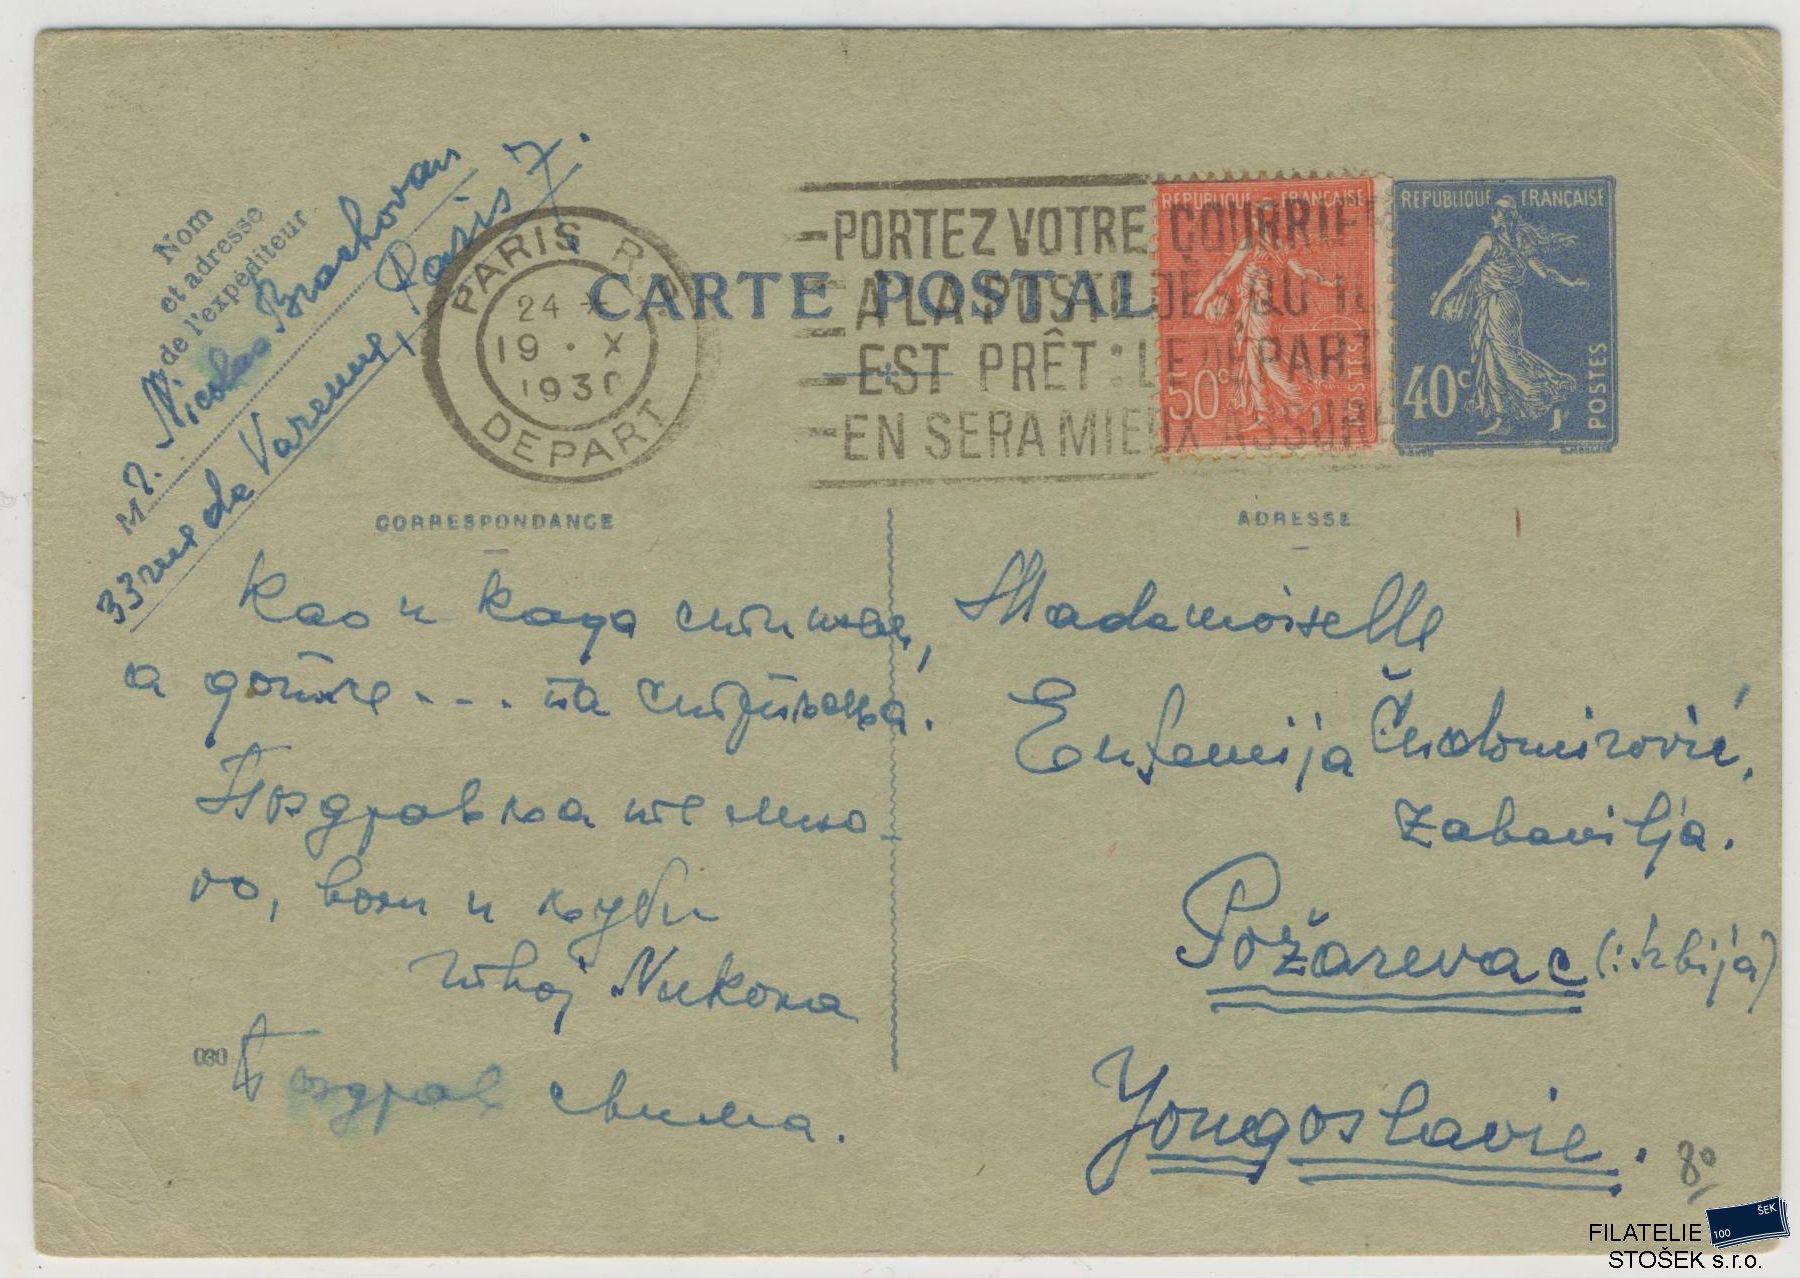 Nom
et adresse
de l'expéditeur
M r. Nicolas Brachovan
33 rue de Varenne, Paris 7.
PARIS R.P.
24 *
19 · X
1930
DEPART
PORTEZ VOTRE COURRIE
A LA POSTE DÈS QU'IL
EST PRÊT : LE DEPART
EN SERA MIEUX ASSUR
CARTE POSTALE
REPUBLIQUE FRANÇAISE
50c
POSTES
REPUBLIQUE FRANÇAISE
40c
POSTES
CORRESPONDANCE
Као и када
а дотле --- па
Поздравља те мно-
го, воли и љуби
твој Никола
030
Поздрав свима.
ADRESSE
Mademoiselle
Eufemija Čudomirović,
zabavilja.
Požarevac (Srbija)
Yougoslavie.
80
FILATELIE
STOŠEK s.r.o.
100 ŠEK